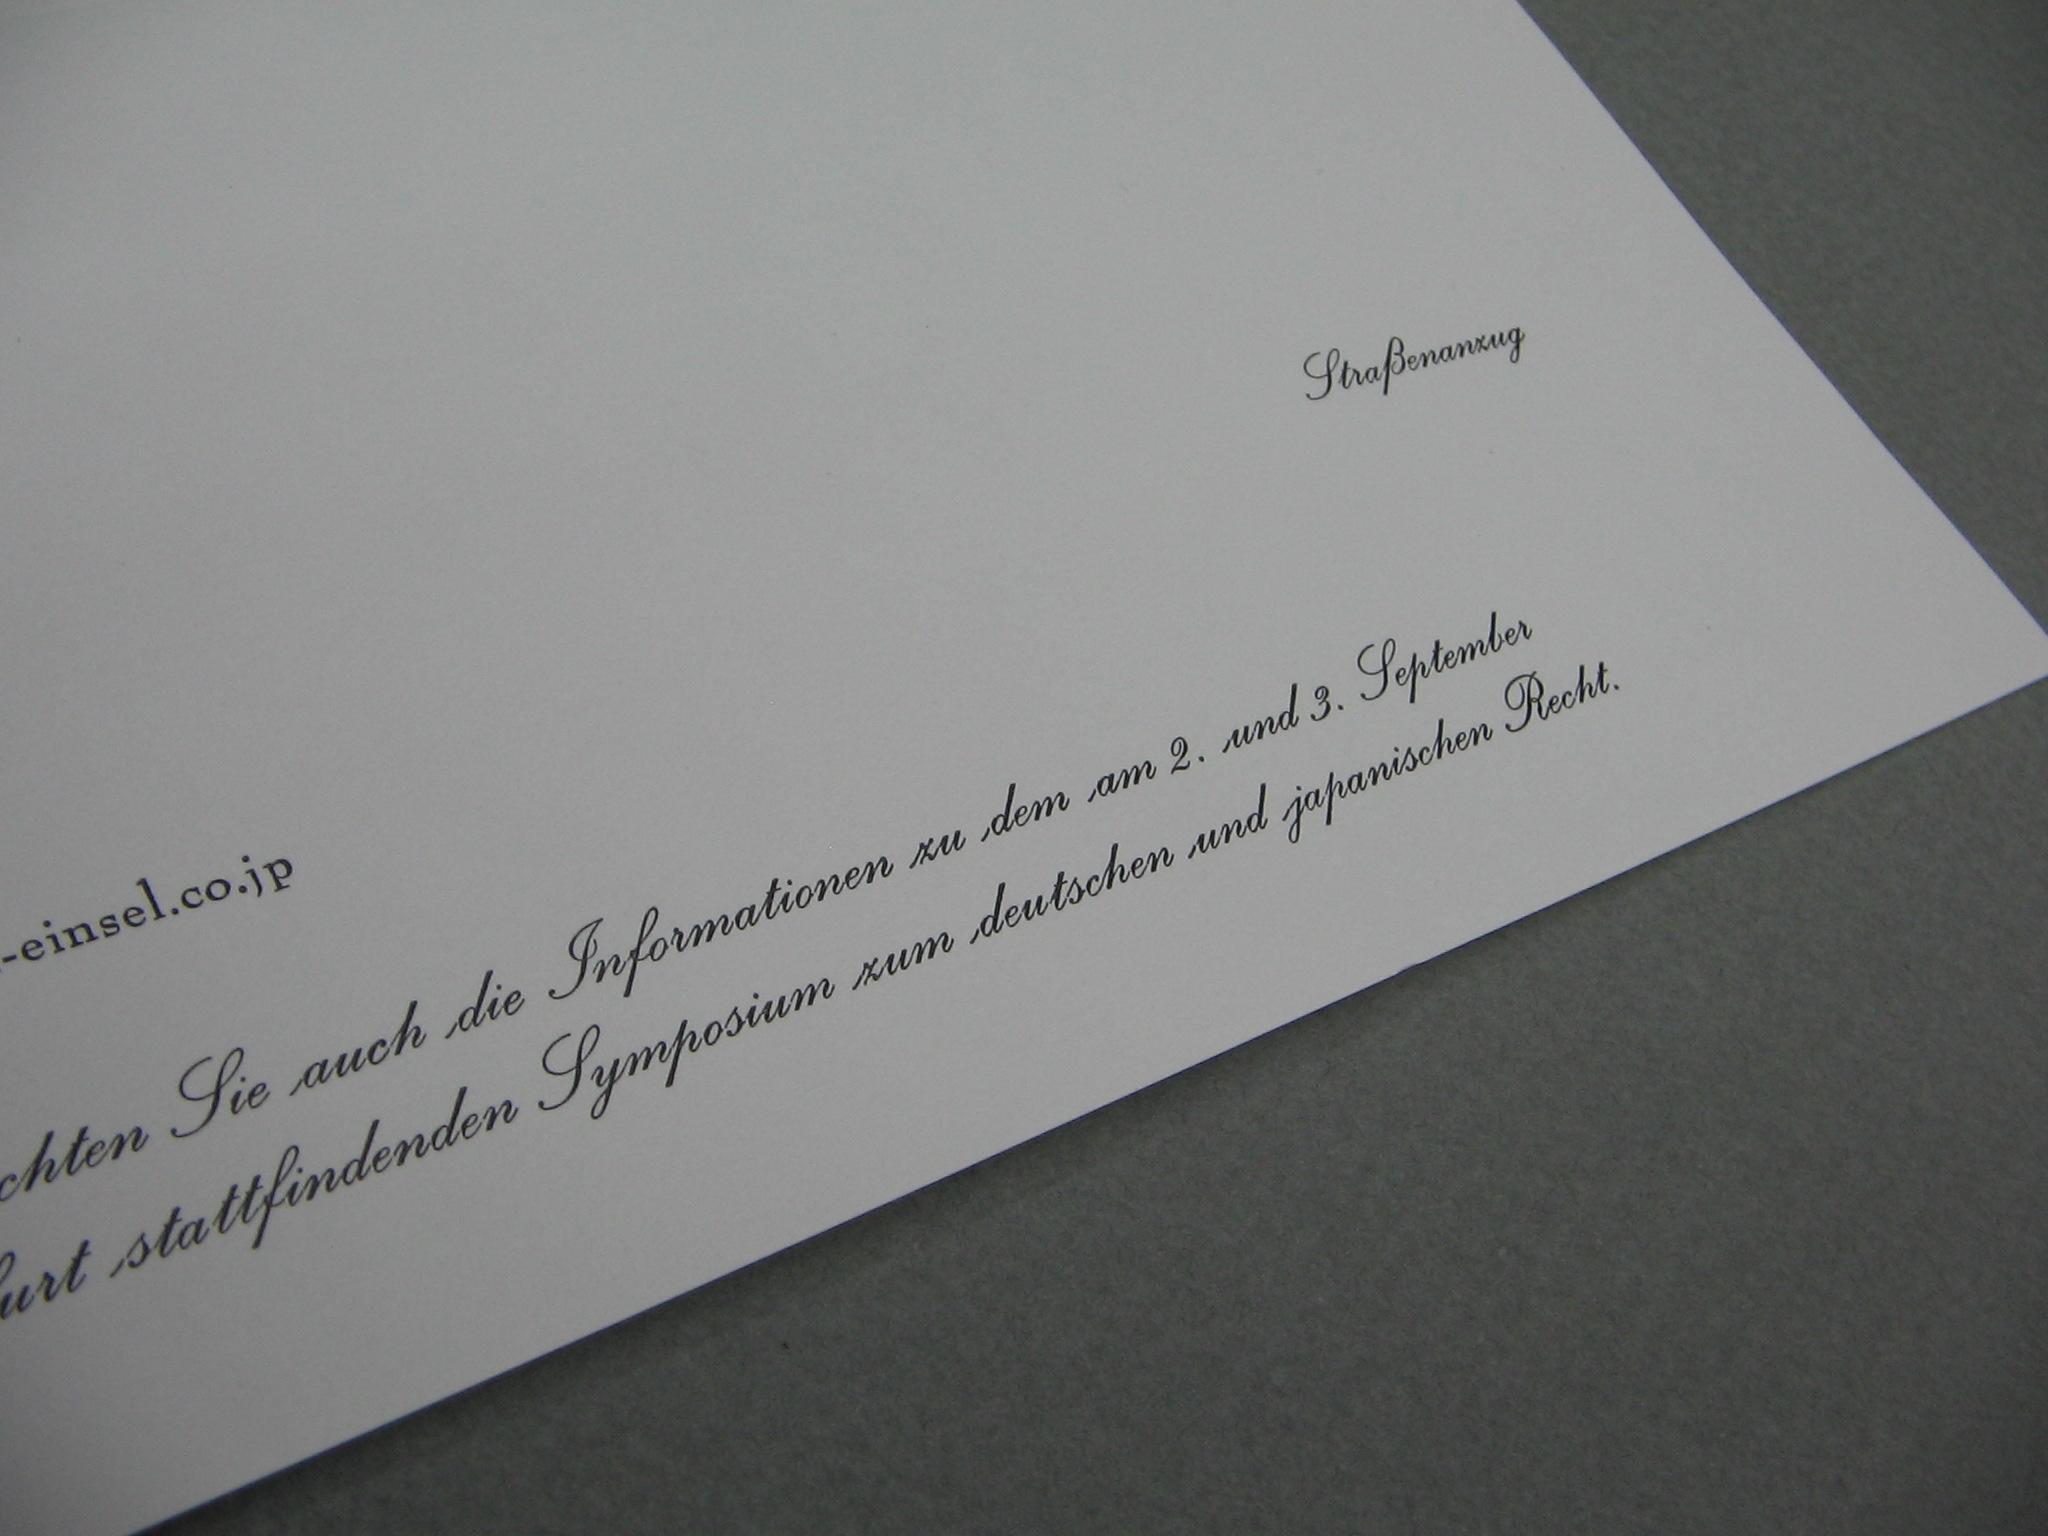 Straßenanzug
-einsel.co.jp
chten Sie auch die Informationen zu dem am 2. und 3. September
furt stattfindenden Symposium zum deutschen und japanischen Recht.